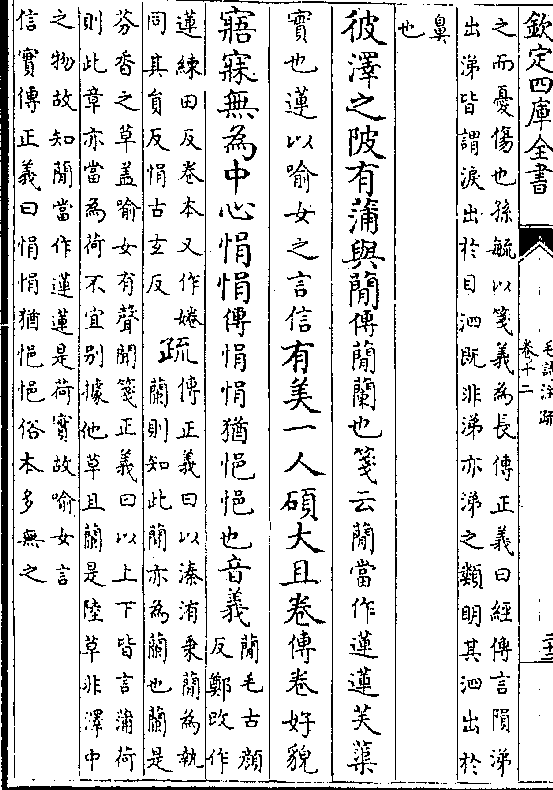 欽定四庫全書
毛詩注疏
卷十二
之而憂傷也孫毓以箋義為長傳正義曰經傳言隕涕
出涕皆謂淚出於目泗既非涕亦涕之類明其泗出於
鼻
也
彼澤之陂有蒲與蕑傳蕑蘭也箋云蕑當作蓮蓮芙蕖
實也蓮以喻女之言信有美一人碩大且卷傳卷好貌
寤寐無為中心悁悁傳悁悁猶悒悒也音義
蕑毛古顔
反鄭改作
蓮練田反卷本又作婘
同其員反悁古玄反
疏
傳正義曰以溱洧秉蕑為執
蘭則知此蕑亦為蘭也蘭是
芬香之草蓋喻女有聲聞箋正義曰以上下皆言蒲荷
則此章亦當為荷不宜别據他草且蘭是陸草非澤中
之物故知蕑當作蓮蓮是荷實故喻女言
信實傳正義曰悁悁猶悒悒俗本多無之